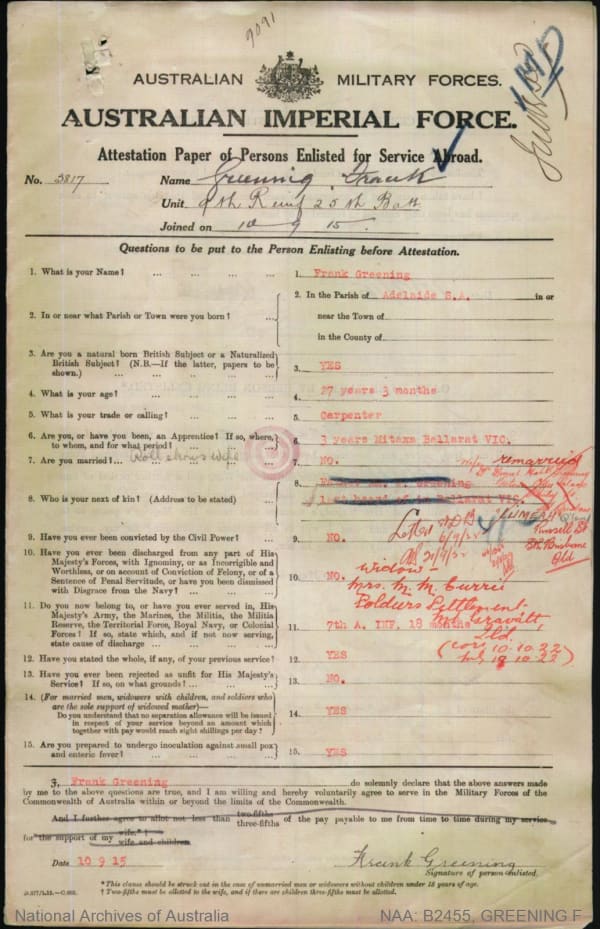 9091
AUSTRALIAN MILITARY FORCES.
AUSTRALIAN IMPERIAL FORCE.
Attestation Paper of Persons Enlisted for Service Abroad.
No. 3817 Name Greening Frank
Unit 9th Reinf 25th Batt
Joined on 10 9 15
Questions to be put to the Person Enlisting before Attestation.
1. What is your Name? ... ... ... ... 1. Frank Greening
2. In or near what Parish or Town were you born? ... 2. In the Parish of Adelaide S.A. in or
near the Town of
in the County of
3. Are you a natural born British Subject or a Naturalized
British Subject? (N.B.—If the latter, papers to be
shown.) ... ... ... ... 3. YES
4. What is your age? ... ... ... ... 4. 27 years 3 months
5. What is your trade or calling? ... ... ... 5. Carpenter
6. Are you, or have you been, an Apprentice? If so, where,
to whom, and for what period? ... ... 6. 3 years Mitaxa Ballarat VIC.
7. Are you married? Roll shows wife 7. NO.
remarried
8. Who is your next of kin? (Address to be stated) ... 8. Greening
last heard of in Ballarat VIC.
Russell St
Sth Brisbane
Qld
9. Have you ever been convicted by the Civil Power? ... 9. NO.
10. Have you ever been discharged from any part of His
Majesty's Forces, with Ignominy, or as Incorrigible and
Worthless, or on account of Conviction of Felony, or of a
Sentence of Penal Servitude, or have you been dismissed
with Disgrace from the Navy? ... ... 10. NO.
Widow—
Mrs. M. M. Currie
Soldiers Settlement
11. Do you now belong to, or have you ever served in, His
Majesty's Army, the Marines, the Militia, the Militia
Reserve, the Territorial Force, Royal Navy, or Colonial
Forces? If so, state which, and if not now serving,
state cause of discharge ... ... ... 11. 7th A. INF. 18 months
Qld.
10.10.22
12. Have you stated the whole, if any, of your previous service? 12. YES
13. Have you ever been rejected as unfit for His Majesty's
Service? If so, on what grounds? ... ... ... 13. NO.
14. (For married men, widowers with children, and soldiers who
are the sole support of widowed mother)—
Do you understand that no separation allowance will be issued
in respect of your service beyond an amount which
together with pay would reach eight shillings per day? 14. YES
15. Are you prepared to undergo inoculation against small pox
and enteric fever? ... ... ... ... 15. YES
I, Frank Greening do solemnly declare that the above answers made
by me to the above questions are true, and I am willing and hereby voluntarily agree to serve in the Military Forces of the
Commonwealth of Australia within or beyond the limits of the Commonwealth.
And I further agree to allot not less than two-fifths three-fifths of the pay payable to me from time to time during my service
for the support of my wife.*† wife and children
Date 10 9 15 Frank Greening
Signature of person enlisted.
* This clause should be struck out in the case of unmarried men or widowers without children under 18 years of age.
† Two-fifths must be allotted to the wife, and if there are children three-fifths must be allotted.
National Archives of Australia NAA: B2455, GREENING F